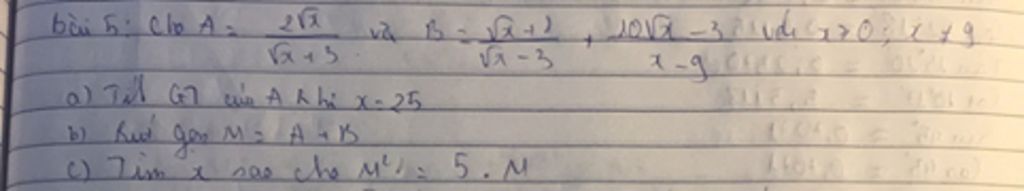 bài 5: Cho A = 2√x / (√x + 3) và B = (√x + 1) / (√x - 3) + (10√x - 3) / (x - 9) với x > 0; x ≠ 9
a) Tính GT của A khi x = 25
b) Rút gọn M = A + B
c) Tìm x sao cho M² = 5 . M